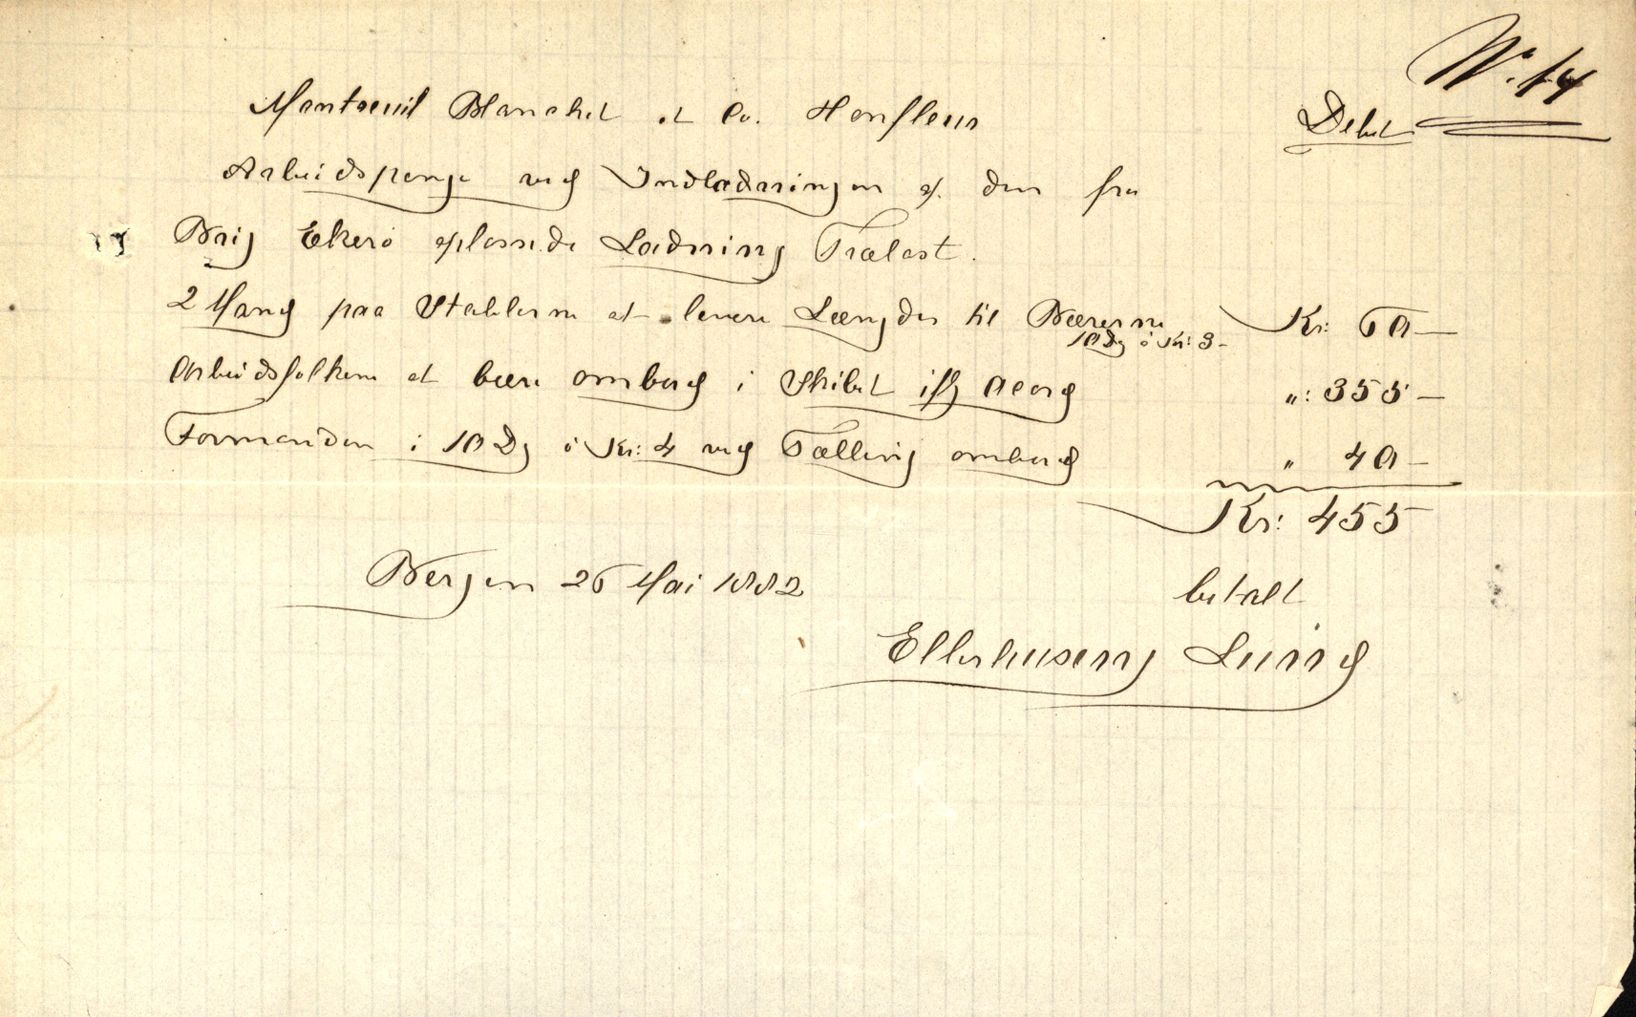 No. 14
Montreuil Blanchet et Co. Honfleur Debet
Arbeidspenge ved Indladningen af den fra
Brig Ekerö oplossede Ladning Trælast.
2 Mand paa Stablerne at levere Længder til Bærerne Kr: 60 —
10 Dg á Kr: 3 -
Arbeidsfolkene at bære ombord i Skibet Georg ": 355 —
Formanden i 10 Dg á Kr: 4 ved Tælling ombord " 40 —
Kr: 455
Bergen 26 Mai 1882
betalt
Ellerhusen Lund